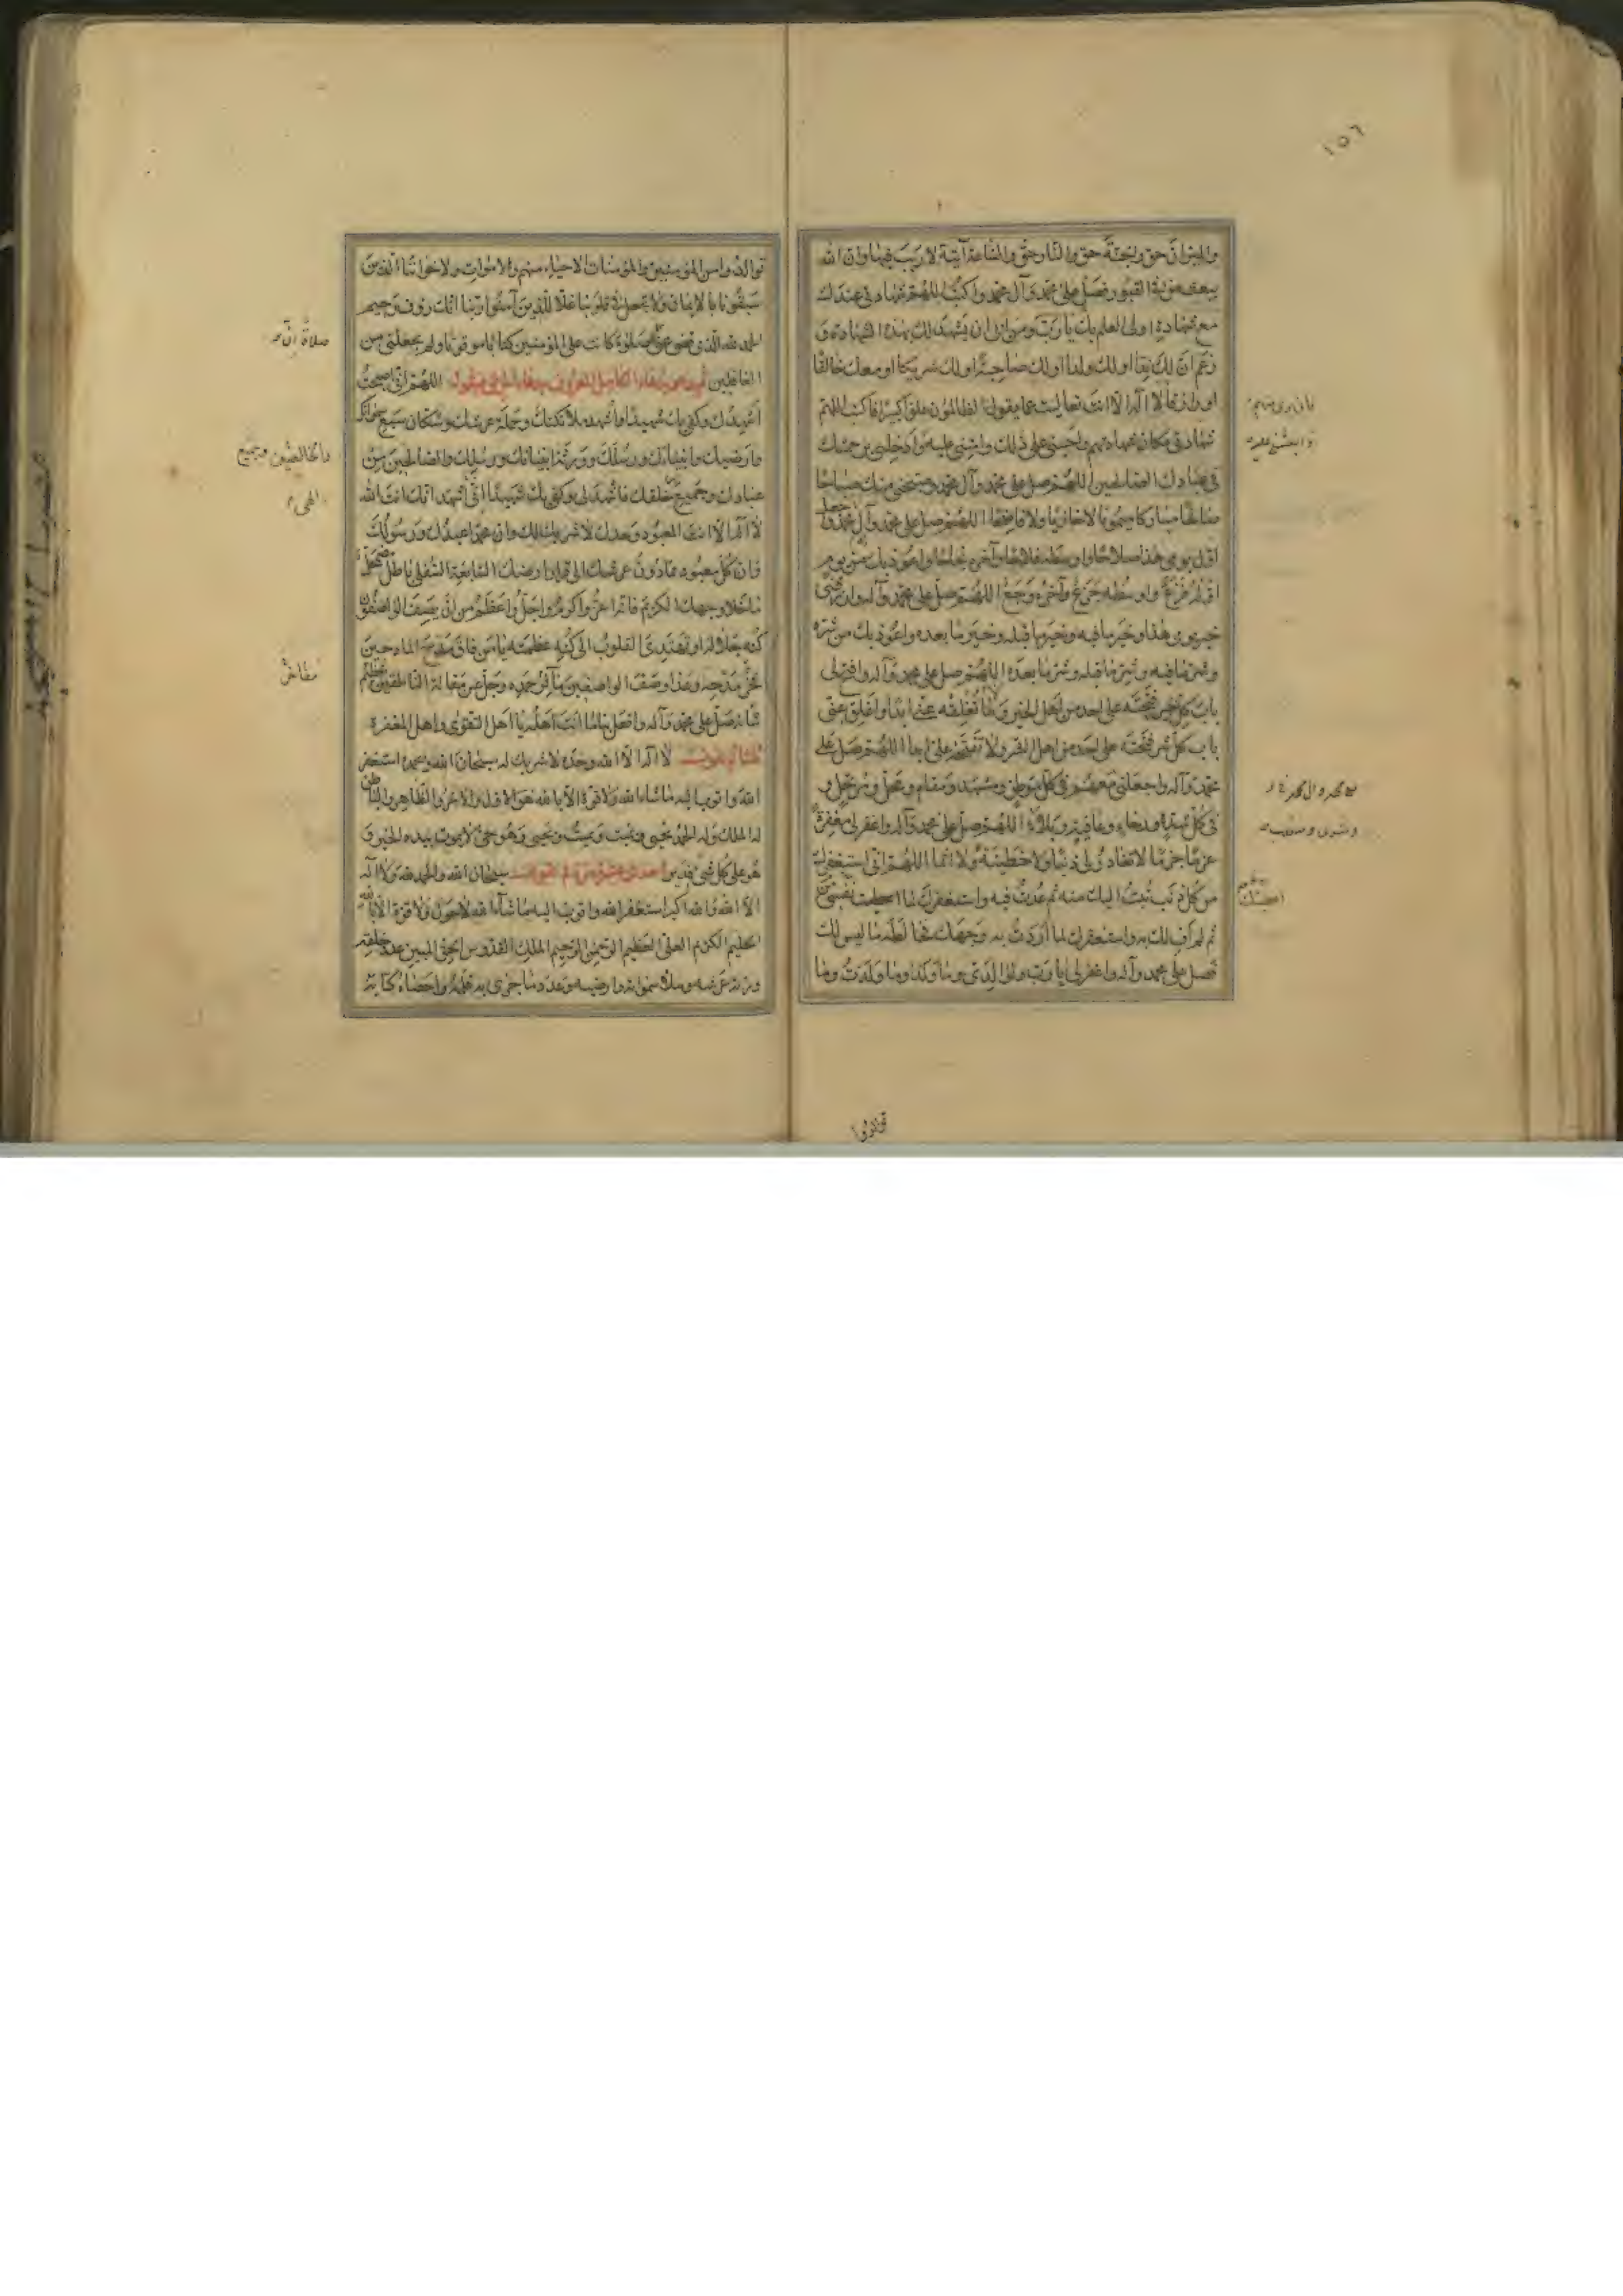 ١٥٦
والميزان حق والجنة حق والنار حق والساعة آتية لا ريب فيها وان الله
يبعث من في القبور فصل على محمد وآل محمد واكتب اللهم شهادتي عندك
مع شهادة اولى العلم بك يا رب ومن ابى ان يشهد لك بهذه الشهادة و
زعم ان لك ندا او لك ولدا او لك صاحبة او لك شريكا او معك خالقا
او رازقا لا اله الا انت تعاليت عما يقول الظالمون علوا كبيرا فاكتب اللهم
شهادتي مكان شهادتهم واحيني على ذلك وامتني عليه وادخلني برحمتك
في عبادك الصالحين اللهم صل على محمد وآل محمد وصبحني منك صباحا
صالحا مباركا ميمونا لا خازيا ولا فاضحا اللهم صل على محمد وآل محمد واجعل
اول يومي هذا صلاحا واوسطه فلاحا وآخره نجاحا واعوذ بك من يوم
اوله فزع واوسطه جزع وآخره وجع اللهم صل على محمد وآله وارزقني
خير يومي هذا وخير ما فيه وخير ما قبله وخير ما بعده واعوذ بك من شره
وشر ما فيه وشر ما قبله وشر ما بعده اللهم صل على محمد وآله وافتح لى
باب كل خير فتحته على احد من اهل الخير ولا تغلقه عني ابدا واغلق عني
باب كل شر فتحته على احد من اهل الشر ولا تفتحه على ابدا اللهم صل على
محمد وآله واجعلني معهم في كل موطن ومشهد ومقام ومحل ومرتحل و
في كل شدة ورخاء وعافية وبلاء اللهم صل على محمد وآله واغفر لى مغفرة
عزما جزما لا تغادر لى ذنبا ولا خطيئة ولا اثما اللهم انى استغفرك
من كل ذنب تبت اليك منه ثم عدت فيه واستغفرك لما اعطيت نفسي
ثم لم اف لك به واستغفرك لما اردت به وجهك فخالطه ما ليس لك
فصل على محمد وآله واغفر لى يا رب ولوالدى وما ولدا وما ولدت وما
توالدوا من المؤمنين والمؤمنات الاحياء منهم والاموات ولاخواننا الذين
سبقونا بالايمان ولا تجعل في قلوبنا غلا للذين آمنوا ربنا انك رؤف رحيم
الحمد لله الذى قضى عنى صلوة كانت على المؤمنين كتابا موقوتا ولم يجعلني من
الغافلين ثم يدعو بدعاء الكامل المعروف بدعاء الحريق فيقول اللهم انى اصبحت
اشهدك وكفى بك شهيدا واشهد ملائكتك وحملة عرشك وسكان سبع سمواتك
وارضيك وانبياءك ورسلك وورثة انبيائك ورسلك والصالحين من
عبادك وجميع خلقك فاشهد لى وكفى بك شهيدا انى اشهد انك انت الله
لا اله الا انت المعبود وحدك لا شريك لك وان محمدا عبدك ورسولك
وان كل معبود مما دون عرشك الى قرار ارضك السابعة السفلى باطل مضمحل
ما خلا وجهك الكريم فانه اعز واكرم واجل واعظم من ان يصف الواصفون
كنه جلاله او تهتدى القلوب الى كنه عظمته يا من فاق مدح المادحين
فخر مدحه وعدا وصف الواصفين مآثر حمده وجل عن مقالة الناطقين تعظيم
شانه صل على محمد وآله وافعل بنا ما انت اهله يا اهل التقوى واهل المغفرة
ثلثا ثم يقول لا اله الا الله وحده لا شريك له سبحان الله وبحمده استغفر
الله واتوب اليه ما شاء الله ولا قوة الا بالله هو الاول والآخر والظاهر والباطن
له الملك وله الحمد يحيى ويميت ويميت ويحيى وهو حي لا يموت بيده الخير و
هو على كل شئ قدير احدى عشرة مرة ثم يقول سبحان الله والحمد لله ولا اله
الا الله والله اكبر استغفر الله واتوب اليه ما شاء الله لا حول ولا قوة الا بالله
الحليم الكريم العلى العظيم الرحمن الرحيم الملك القدوس الحق المبين عدد خلقه
وزنة عرشه وملأ سمواته وارضيه وعدد ما جرى به قلمه واحصاه كتابه
صلاة
والخالصين وجميع
الهى